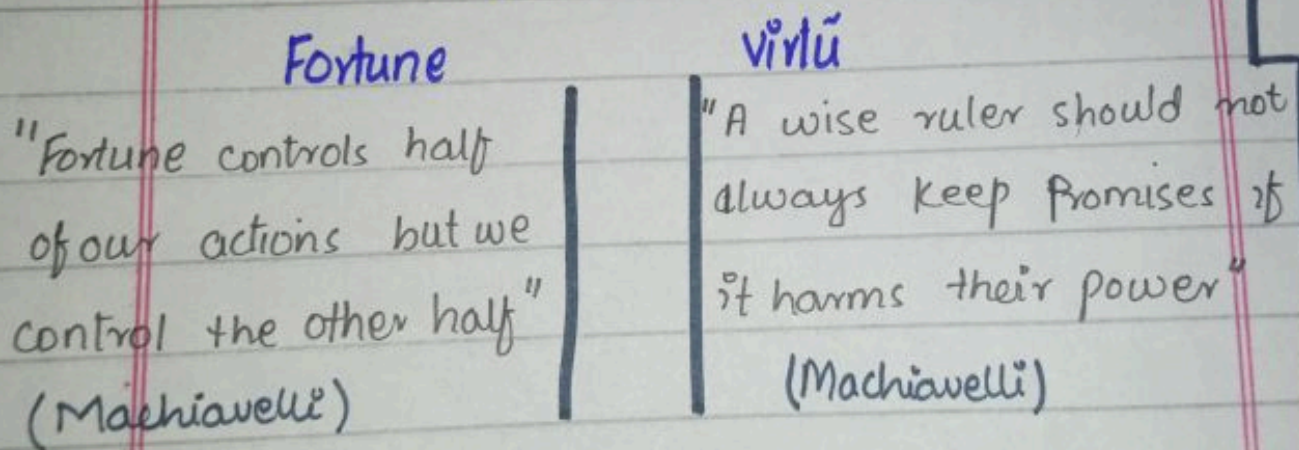 Fortune
"Fortune controls half
of our actions but we
control the other half"
(Machiavelli)
Virtũ
"A wise ruler should not
always keep Promises if
it harms their power"
(Machiavelli)